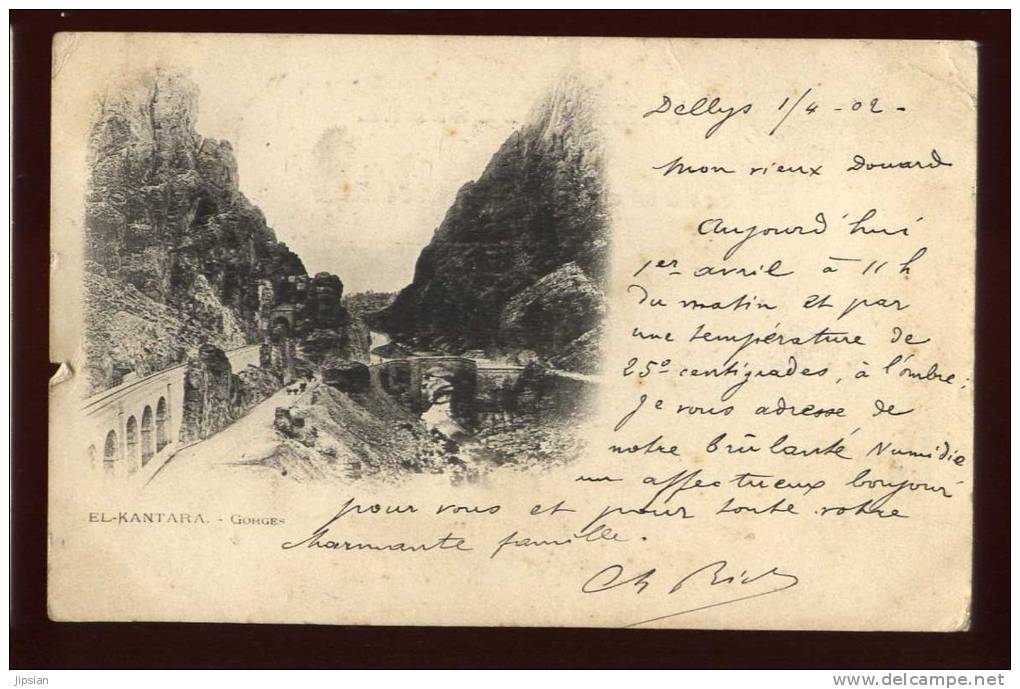 Dellys 1/4 - 02 -
Mon vieux Douard
Aujourd'hui
1er avril à 11 h
du matin et par
une température de
25° centigrades, à l'ombre;
je vous adresse de
notre brûlante Numidie
un affectueux bonjour
pour vous et pour toute votre
charmante famille.
Ch
EL-KANTARA. - Gorges
jipsian
delcampe.net